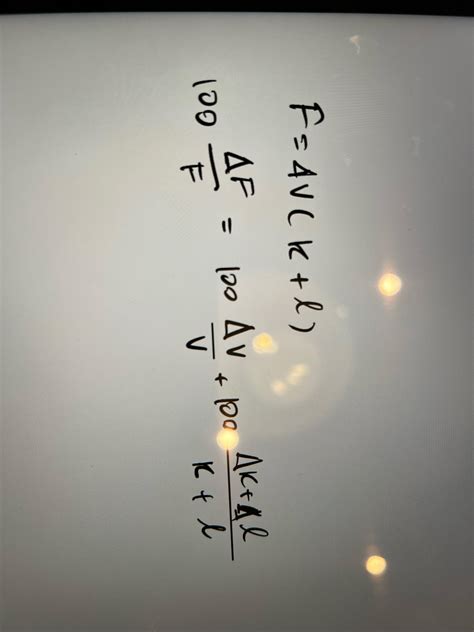 F = 4V(k + l)
100 ΔF/F = 100 ΔV/V + 100 Δk+Δl/k + l